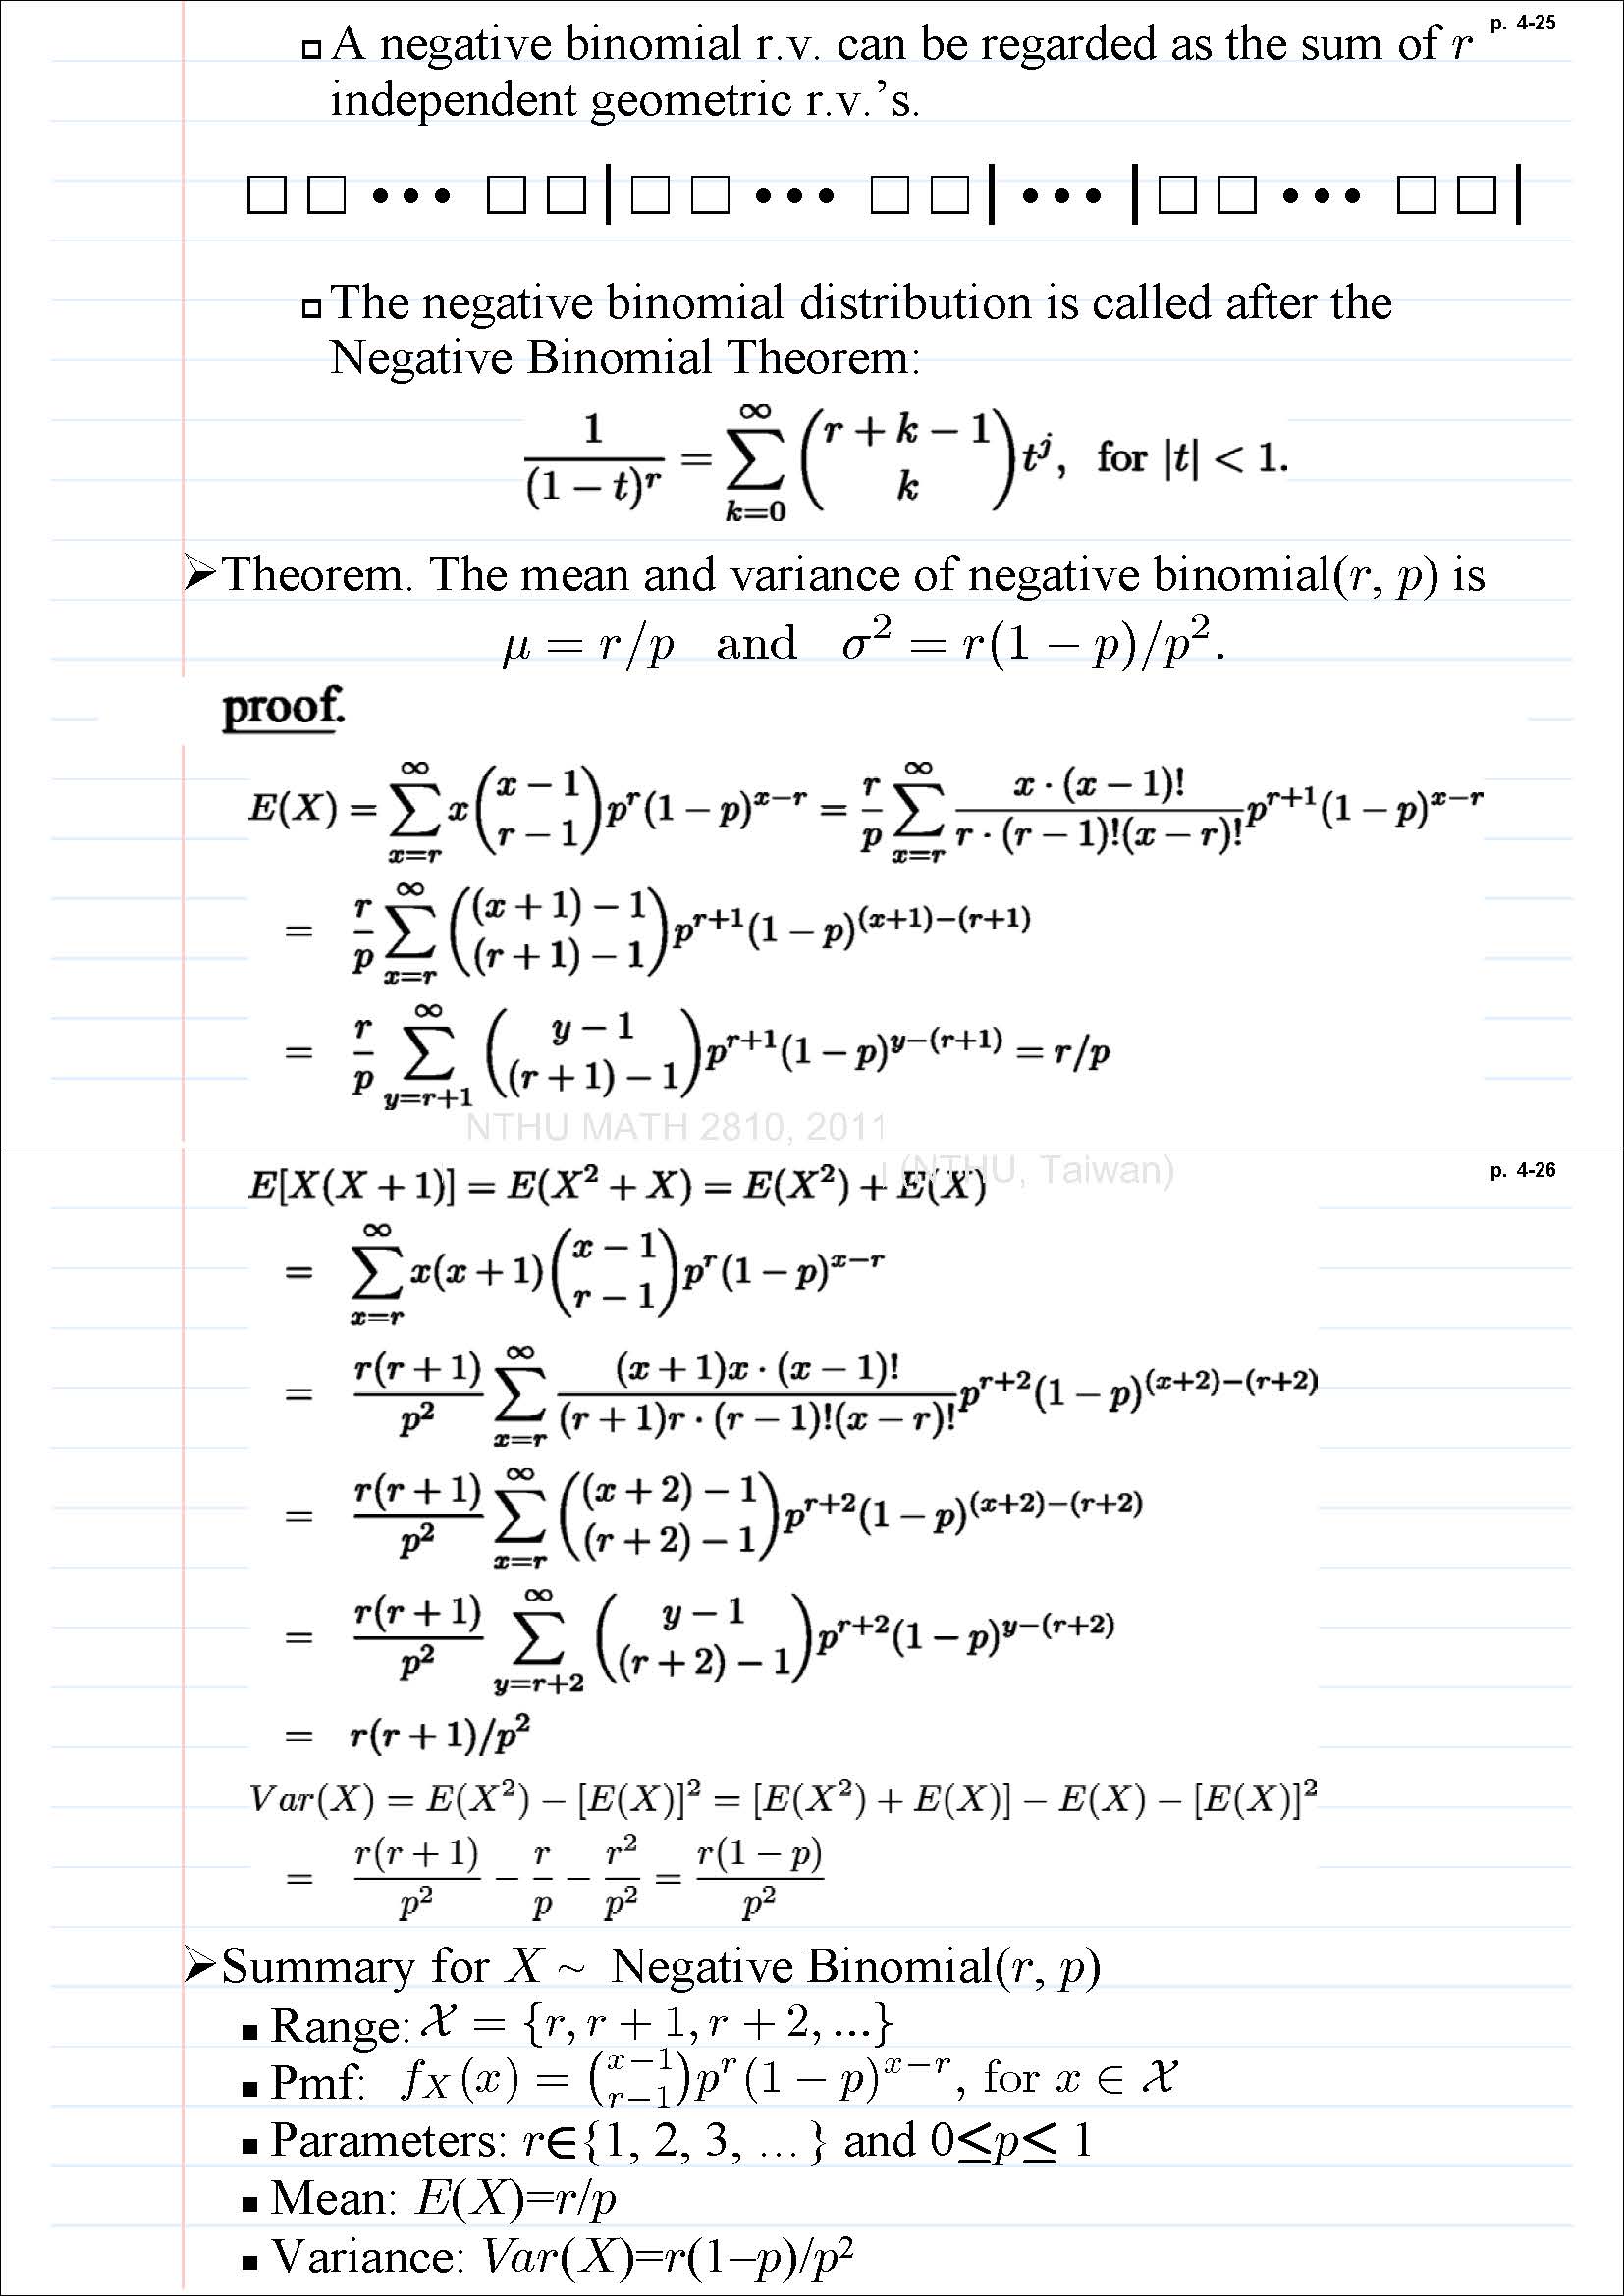 p. 4-25
▫ A negative binomial r.v. can be regarded as the sum of r
independent geometric r.v.'s.
□ □ ••• □ □ | □ □ ••• □ □ | ••• | □ □ ••• □ □ |
▫ The negative binomial distribution is called after the
Negative Binomial Theorem:
\frac{1}{(1-t)^r} = \sum_{k=0}^{\infty} \binom{r+k-1}{k} t^j, for |t| < 1.
➢ Theorem. The mean and variance of negative binomial(r, p) is
μ = r/p and σ² = r(1 − p)/p².
proof.
E(X) = \sum_{x=r}^{\infty} x \binom{x-1}{r-1} p^r (1-p)^{x-r} = \frac{r}{p} \sum_{x=r}^{\infty} \frac{x \cdot (x-1)!}{r \cdot (r-1)!(x-r)!} p^{r+1} (1-p)^{x-r}
= \frac{r}{p} \sum_{x=r}^{\infty} \binom{(x+1)-1}{(r+1)-1} p^{r+1} (1-p)^{(x+1)-(r+1)}
= \frac{r}{p} \sum_{y=r+1}^{\infty} \binom{y-1}{(r+1)-1} p^{r+1} (1-p)^{y-(r+1)} = r/p
NTHU MATH 2810, 2011
(NTHU, Taiwan)
p. 4-26
E[X(X + 1)] = E(X² + X) = E(X²) + E(X)
= \sum_{x=r}^{\infty} x(x+1) \binom{x-1}{r-1} p^r (1-p)^{x-r}
= \frac{r(r+1)}{p^2} \sum_{x=r}^{\infty} \frac{(x+1)x \cdot (x-1)!}{(r+1)r \cdot (r-1)!(x-r)!} p^{r+2} (1-p)^{(x+2)-(r+2)}
= \frac{r(r+1)}{p^2} \sum_{x=r}^{\infty} \binom{(x+2)-1}{(r+2)-1} p^{r+2} (1-p)^{(x+2)-(r+2)}
= \frac{r(r+1)}{p^2} \sum_{y=r+2}^{\infty} \binom{y-1}{(r+2)-1} p^{r+2} (1-p)^{y-(r+2)}
= r(r + 1)/p²
Var(X) = E(X²) − [E(X)]² = [E(X²) + E(X)] − E(X) − [E(X)]²
= \frac{r(r+1)}{p^2} - \frac{r}{p} - \frac{r^2}{p^2} = \frac{r(1-p)}{p^2}
➢ Summary for X ~ Negative Binomial(r, p)
▪ Range: 𝒳 = {r, r + 1, r + 2, ...}
▪ Pmf: f_X(x) = \binom{x-1}{r-1} p^r (1 − p)^{x−r}, for x ∈ 𝒳
▪ Parameters: r∈{1, 2, 3, … } and 0≤p≤ 1
▪ Mean: E(X)=r/p
▪ Variance: Var(X)=r(1–p)/p²